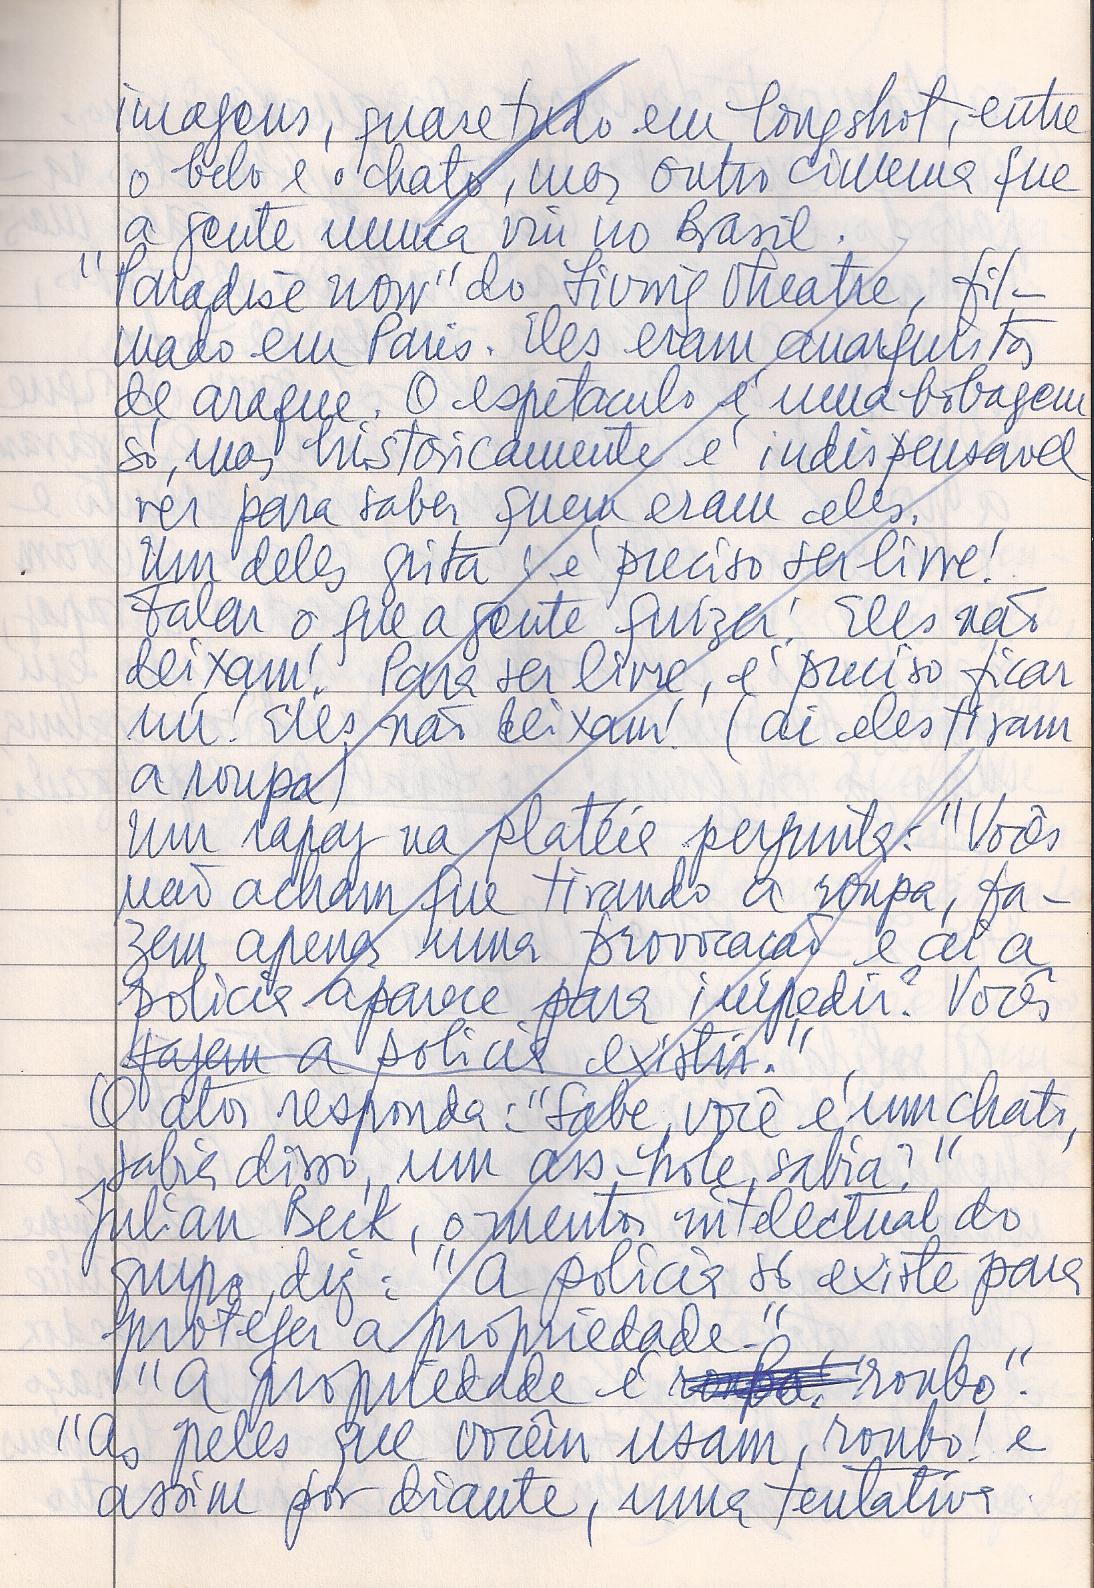 imagens, quase tudo em longshot, entre
o belo e o chato, mas outro cinema que
a gente nunca viu no Brasil.
"Paradise now" do Living theatre, fil-
mado em Paris. Eles eram anarquistas
de araque. O espetaculo é uma bobagem
só, mas historicamente é indispensavel
ver para saber quem eram eles.
Um deles grita: é preciso ser livre!
Falar o que a gente quizer! Eles não
deixam! Para ser livre, é preciso ficar
nú! Eles não deixam! (ai eles tiram
a roupa)
Um rapaz na platéia pergunta: "Vocês
não acham que tirando a roupa, fa-
zem apenas uma provocação e aí a
policia aparece para impedir? Vocês
fazem a policia existir."
O ator responda: "Sabe, você é um chato,
sabia disso, um ass-hole, sabia?"
Julian Beck, o mentor intelectual do
grupo, diz: "A policia só existe para
proteger a propriedade."
"A propriedade é roubo! roubo".
"As peles que vocêm usam, roubo! e
assim por diante, uma tentativa